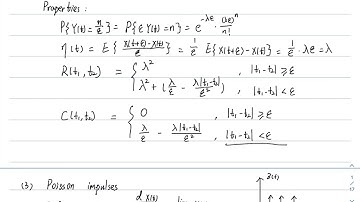 Properties :
P{Y(t) = n/ε} = P{εY(t) = n} = e^{-λε} (λε)^n / n!
η(t) = E{ X(t+ε)-X(t) / ε } = 1/ε E{X(t+ε)-X(t)} = 1/ε · λε = λ
R(t₁,t₂) = { λ² , |t₁-t₂| ≥ ε
λ² + (λ/ε - λ|t₁-t₂|/ε²) , |t₁-t₂| < ε
C(t₁,t₂) = { 0 , |t₁-t₂| ≥ ε
λ/ε - λ|t₁-t₂|/ε² , |t₁-t₂| < ε
(3) Poisson impulses
Z(t)
d X(t)